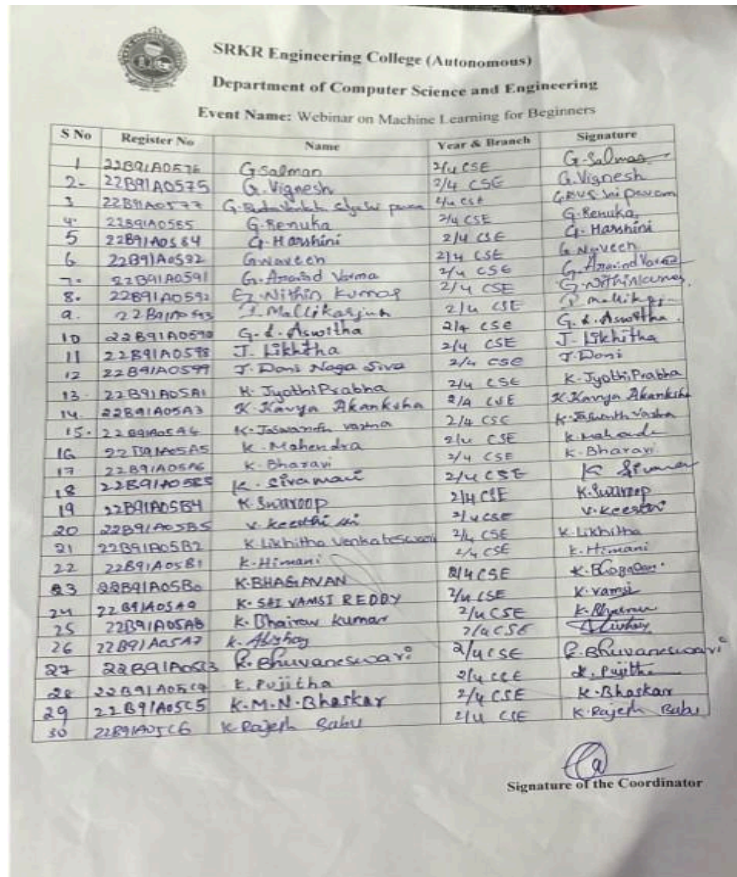 SRKR Engineering College (Autonomous)
Department of Computer Science and Engineering
Event Name: Webinar on Machine Learning for Beginners
S No Register No Name Year & Branch Signature
1 22B91A0576 G Salman 2/4 CSE G. Salman
2- 22B91A0575 G. Vignesh 2/4 CSE G. Vignesh
3 22B91A0577 2/4 CSE
4. 22B91A0585 G. Renuka 2/4 CSE G. Renuka
5 22B91A0584 G. Harshini 2/4 CSE G. Harshini
6 22B91A0592 G Naveen 2/4 CSE G Naveen
7. 22B91A0591 G. Aravind Varma 2/4 CSE G. Aravind Varma
8. 22B91A0592 G. Nithin Kumar 2/4 CSE G. Nithin Kumar
9. 22B91A0593 Mallikarjun 2/4 CSE
10 22B91A0590 G. L. Aswitha 2/4 CSE G. L. Aswitha
11 22B91A0598 J. Likhitha 2/4 CSE J. Likhitha
12 22B91A0599 J. Doni Naga Siva 2/4 CSE J. Doni
13. 22B91A05A1 K. Jyothi Prabha 2/4 CSE K. Jyothi Prabha
14. 22B91A05A3 K. Kavya Akanksha 2/4 CSE K. Kavya Akanksha
15. 22B91A05A4 K. Jaswanth varma 2/4 CSE K. Jaswanth varma
16 22B91A05A5 K. Mahendra 2/4 CSE
17 22B91A05A6 K. Bharavi 2/4 CSE K. Bharavi
18 K. Sivamani 2/4 CSE
19 22B91A05B4 K. Swaroop 2/4 CSE K. Swaroop
20 22B91A05B5 V. Keerthi sri 2/4 CSE V. Keerthi
21 22B91A05B2 K. Likhitha Venkateswari 2/4 CSE K. Likhitha
22 22B91A05B1 K. Himani 2/4 CSE K. Himani
23 22B91A05B0 K. BHAGAVAN 2/4 CSE K. Bhagavan
24 22B91A05A9 K. SAI VAMSI REDDY 2/4 CSE K. vamsi
25 22B91A05A8 K. Bhairav kumar 2/4 CSE
26 22B91A05A7 K. Abhay 2/4 CSE
27 22B91A05C3 K. Bhuvaneswari 2/4 CSE K. Bhuvaneswari
28 22B91A05C9 K. Pujitha 2/4 CSE K. Pujitha
29 22B91A05C5 K. M. N. Bhaskar 2/4 CSE K. Bhaskar
30 22B91A05C6 K Rajesh Babu 2/4 CSE K. Rajesh Babu
Signature of the Coordinator